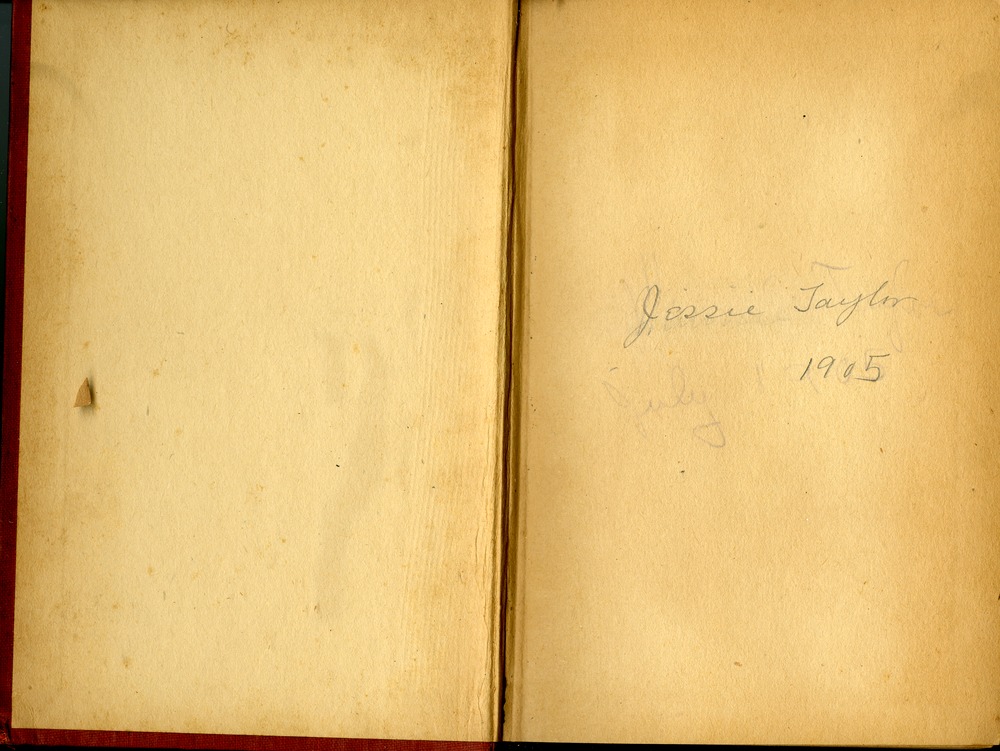 Jessie Taylor
1905
July